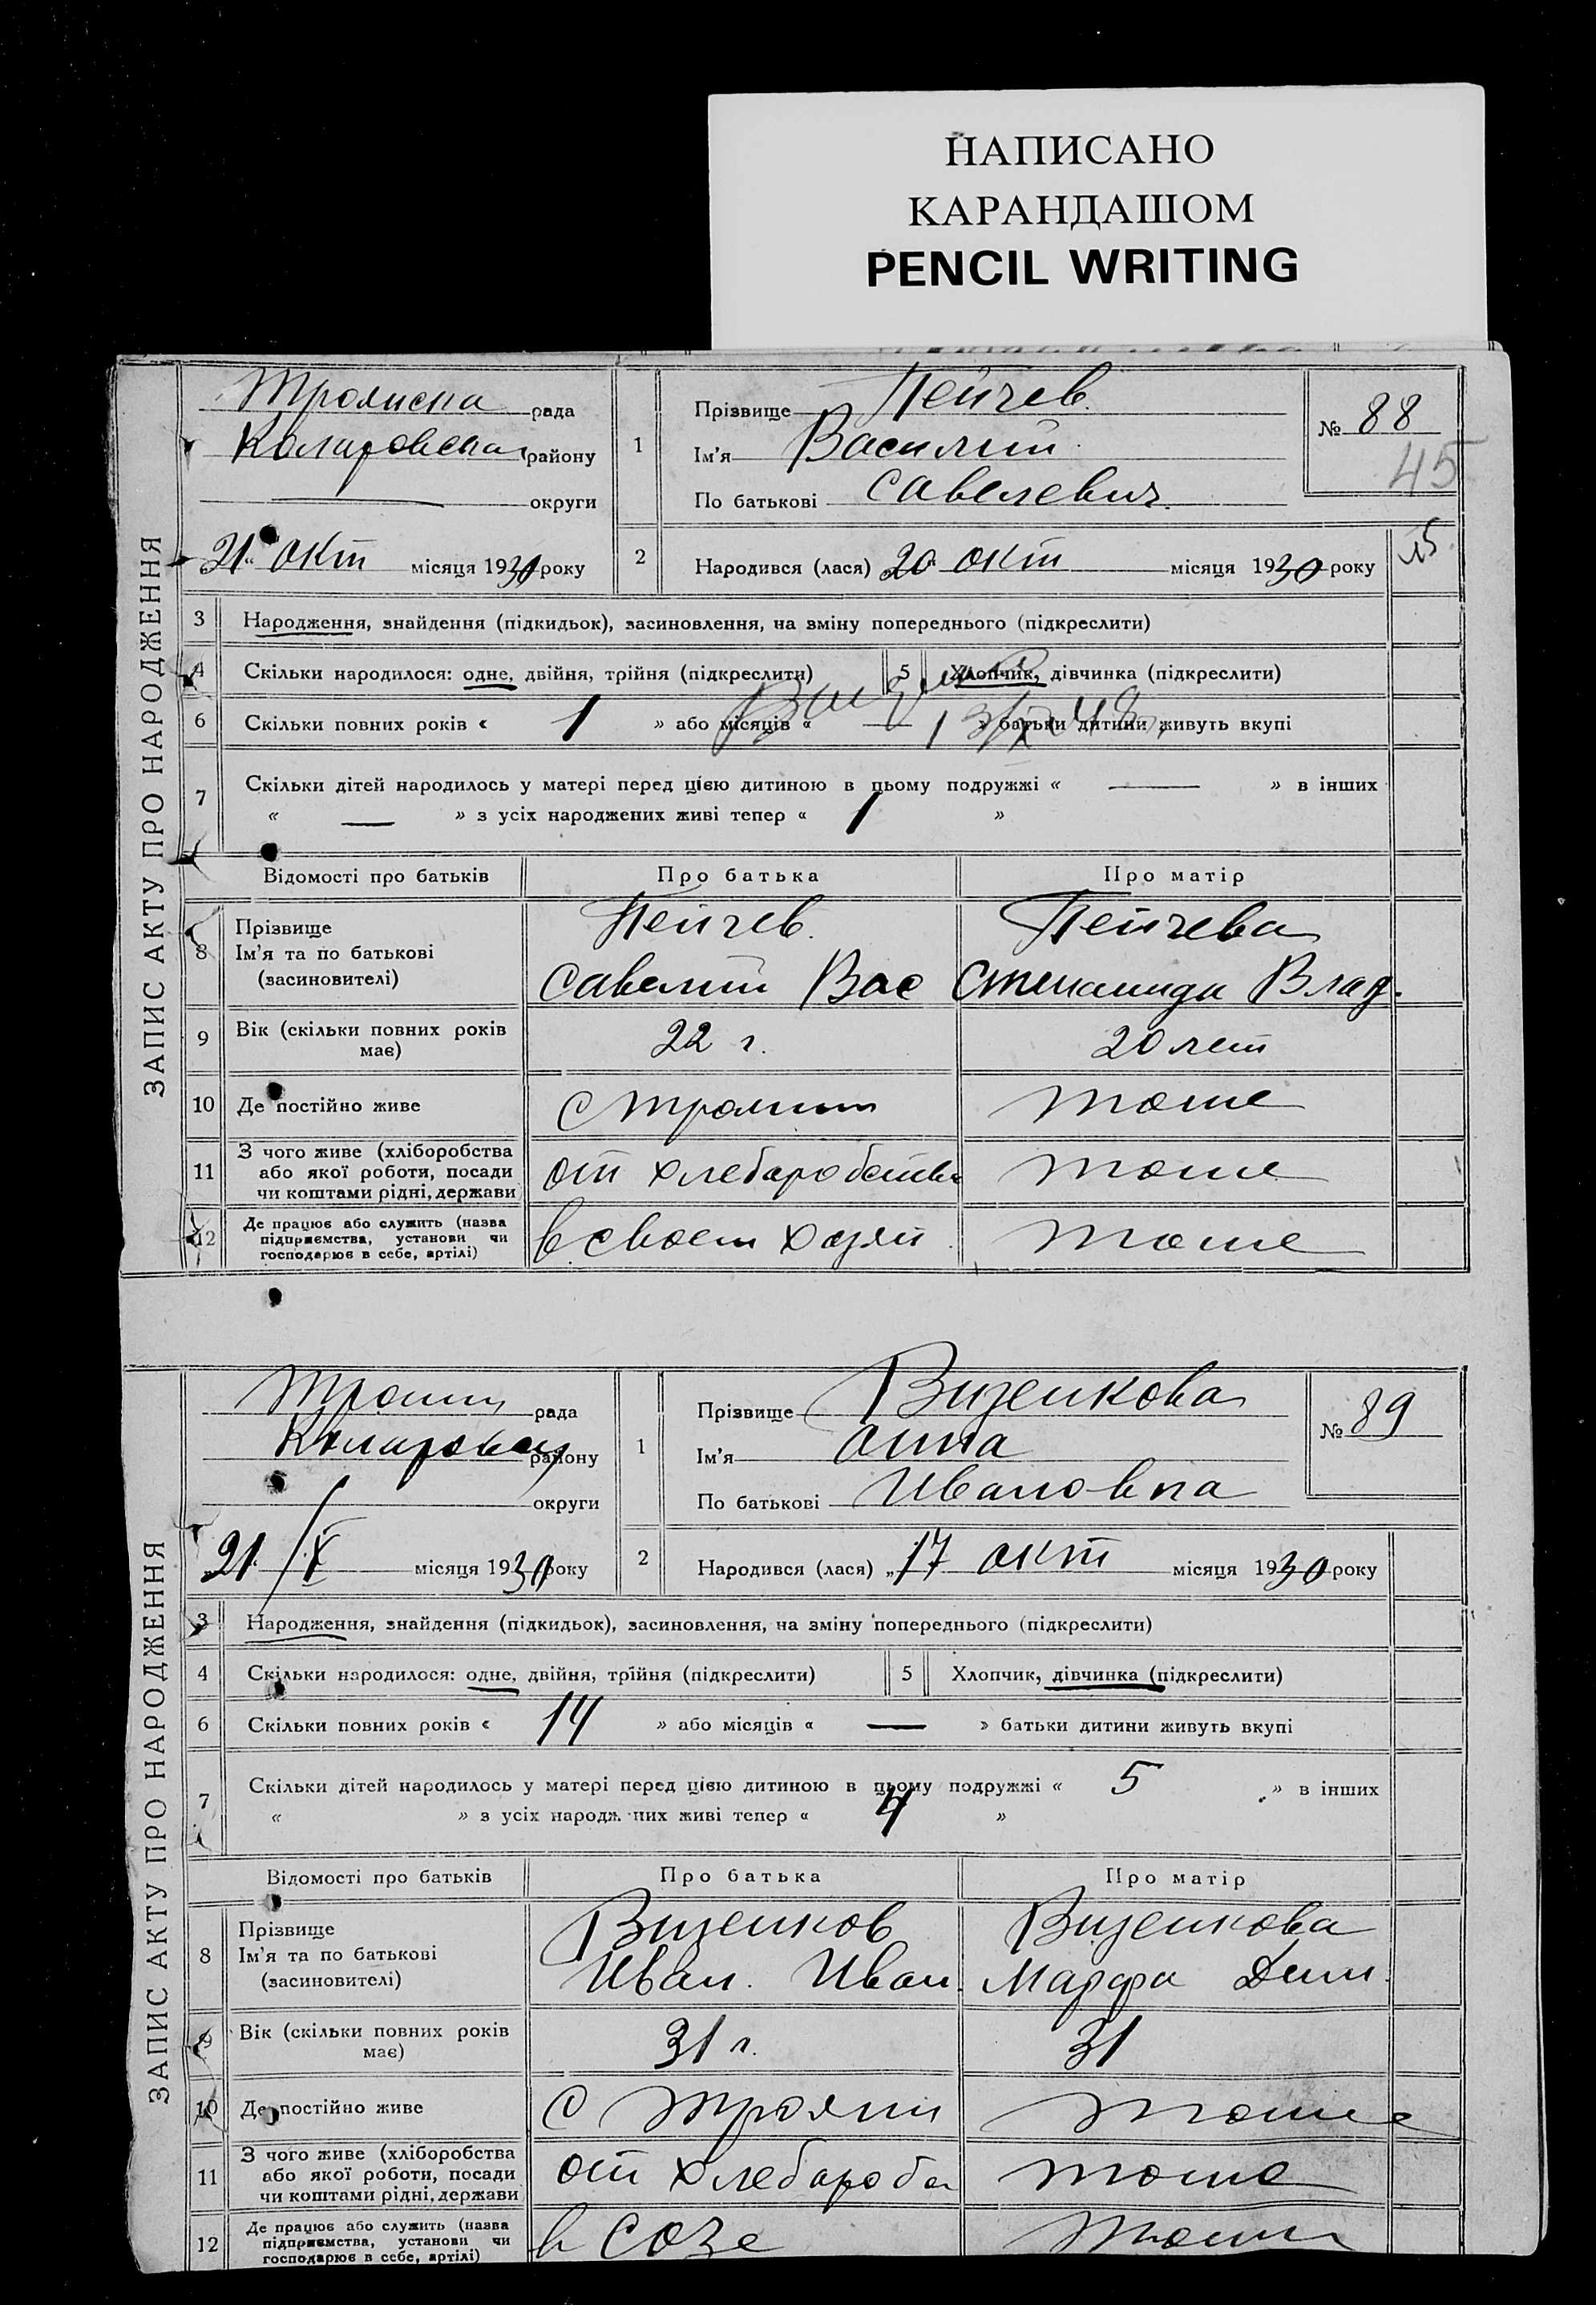 НАПИСАНО
КАРАНДАШОМ
PENCIL WRITING
ЗАПИС АКТУ ПРО НАРОДЖЕННЯ
Троянска рада
Коларовска району
округи
21 окт місяця 1930 року
1
Прізвище Пейчев
Ім'я Василий
По батькові Савелевич
№ 88
45
2
Народився (лася) 20 окт місяця 1930 року
3 Народження, знайдення (підкидьок), засиновлення, на зміну попереднього (підкреслити)
4 Скільки народилося: одне, двійня, трійня (підкреслити) 5 Хлопчик, дівчинка (підкреслити)
6 Скільки повних років « 1 » або місяців « — » батьки дитини живуть вкупі
7 Скільки дітей народилось у матері перед цією дитиною в цьому подружжі « — » в інших
« — » з усіх народжених живі тепер « 1 »
Відомості про батьків Про батька Про матір
8 Прізвище Пейчев Пейчева
Ім'я та по батькові Савелий Вас Степанида Влад.
(засиновителі)
9 Вік (скільки повних років має) 22 г. 20 лет
10 Де постійно живе с Трояни тоже
11 З чого живе (хліборобства або якої роботи, посади чи коштами рідні, держави от хлебаробства тоже
12 Де працює або служить (назва підприємства, установи чи господарює в себе, артілі) в своем хозяй тоже
ЗАПИС АКТУ ПРО НАРОДЖЕННЯ
Троян рада
Коларовск району
округи
21/X місяця 1930 року
1
Прізвище Визенкова
Ім'я Анна
По батькові Ивановна
№ 89
2
Народився (лася) „17 окт місяця 1930 року
3 Народження, знайдення (підкидьок), засиновлення, на зміну попереднього (підкреслити)
4 Скільки народилося: одне, двійня, трійня (підкреслити) 5 Хлопчик, дівчинка (підкреслити)
6 Скільки повних років « 14 » або місяців « — » батьки дитини живуть вкупі
7 Скільки дітей народилось у матері перед цією дитиною в цьому подружжі « 5 » в інших
« » з усіх народж них живі тепер « 4 »
Відомості про батьків Про батька Про матір
8 Прізвище Визенков Визенкова
Ім'я та по батькові Иван. Иван. Марфа Дим.
(засиновителі)
9 Вік (скільки повних років має) 31 г. 31
10 Де постійно живе с Трояни тоже
11 З чого живе (хліборобства або якої роботи, посади чи коштами рідні, держави от хлебароба тоже
12 Де працює або служить (назва підприємства, установи чи господарює в себе, артілі) в Созе тоже